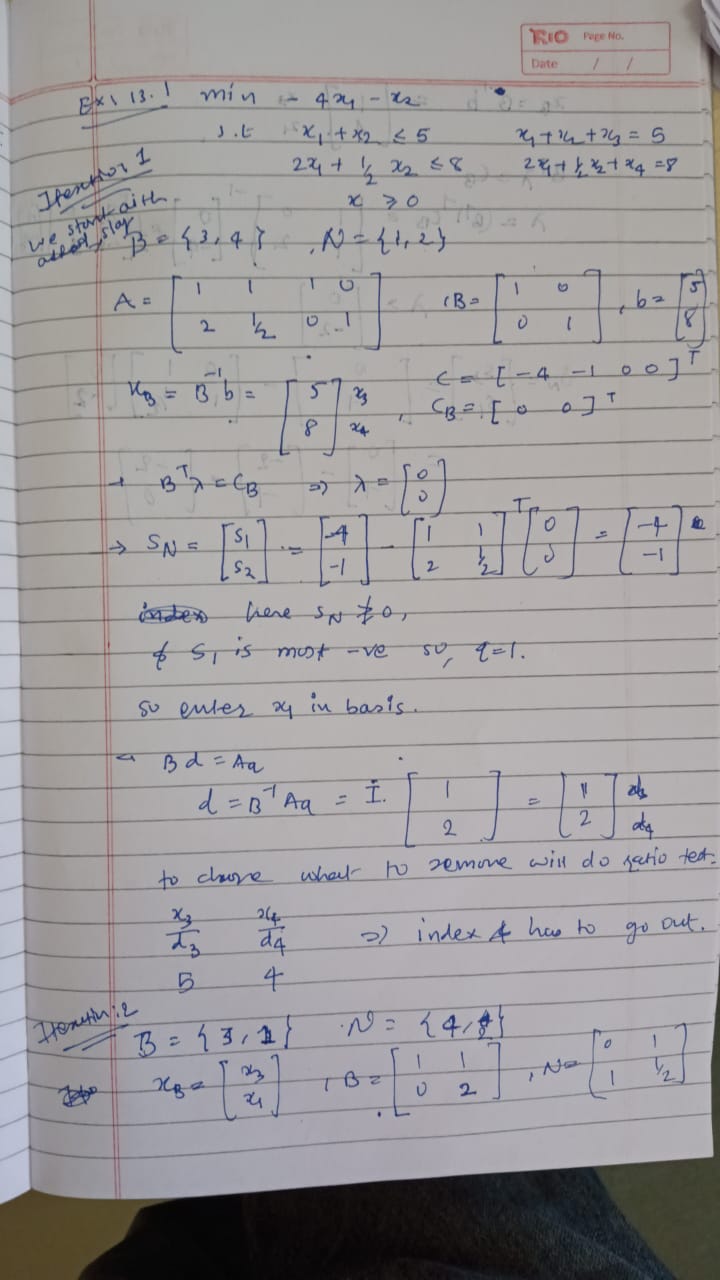 RIO Page No.
Date / /
Ex: 13.1 min - 4x₁ - x₂
s.t x₁ + x₂ ≤ 5 x₁ + x₂ + x₃ = 5
2x₁ + 1/2 x₂ ≤ 8 2x₁ + 1/2 x₂ + x₄ = 8
x ≥ 0
Iteration 1
we start with
B = {3, 4}, N = {1, 2}
A = [1 1 1 0; 2 1/2 0 1], B = [1 0; 0 1], b = [5; 8]
x_B = B⁻¹b = [5; 8] x₃ x₄, C = [-4 -1 0 0]ᵀ
C_B = [0 0]ᵀ
→ Bᵀλ = C_B ⇒ λ = [0; 0]
→ S_N = [S₁; S₂] = [-4; -1] - [1 1; 2 1/2]ᵀ [0; 0] = [-4; -1]
here S_N ≱ 0,
& S₁ is most -ve so, q=1.
so enter x₁ in basis.
Bd = Aq
d = B⁻¹Aq = I. [1; 2] = [1; 2] d₃ d₄
to choose what to remove will do ratio test:
x₃/d₃ x₄/d₄ ⇒ index 4 has to go out.
5 4
Iteration: 2
B = {3, 1} N = {4, 2}
x_B = [x₃; x₁], B = [1 1; 0 2], N = [0 1; 1 1/2]